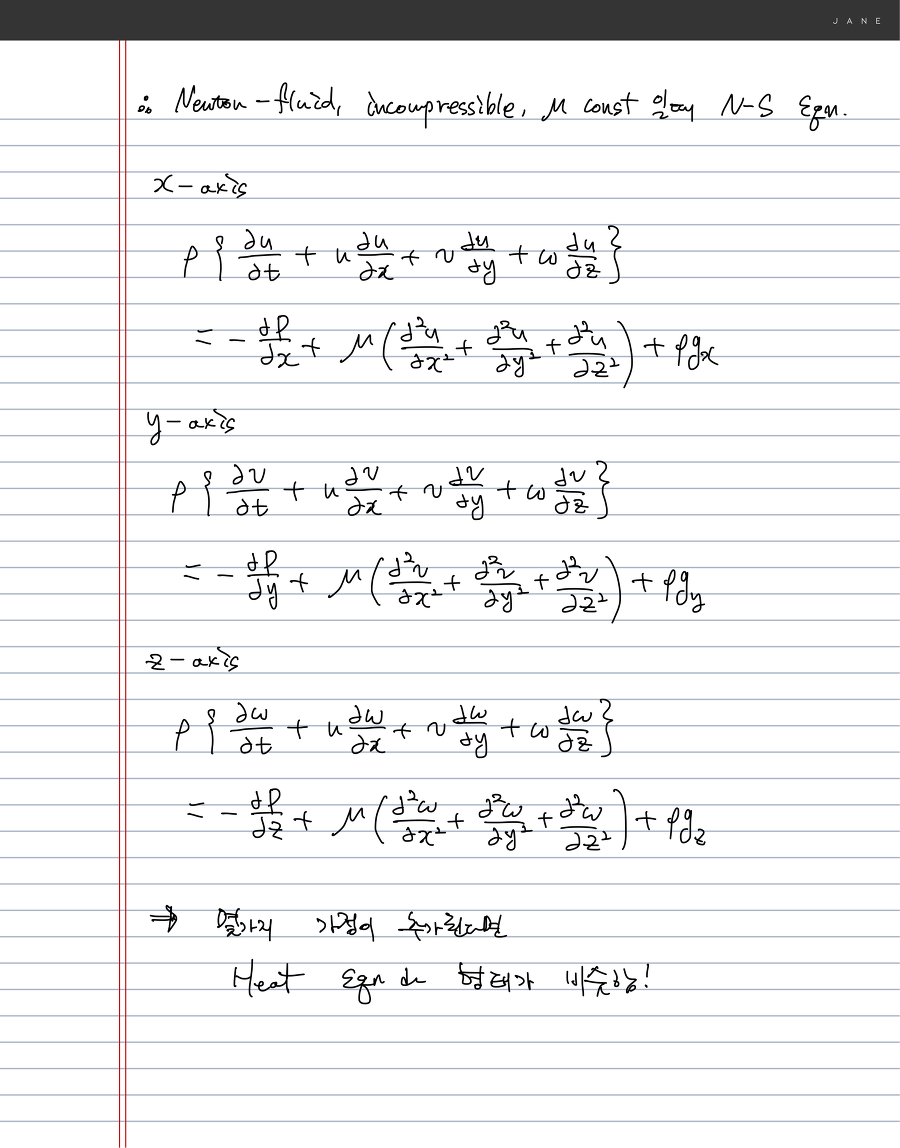 JANE
∴ Newton-fluid, incompressible, μ const 일 때 N-S Eqn.
x-axis
ρ { ∂u/∂t + u ∂u/∂x + v ∂u/∂y + w ∂u/∂z }
= - ∂P/∂x + μ ( ∂²u/∂x² + ∂²u/∂y² + ∂²u/∂z² ) + ρg_x
y-axis
ρ { ∂v/∂t + u ∂v/∂x + v ∂v/∂y + w ∂v/∂z }
= - ∂P/∂y + μ ( ∂²v/∂x² + ∂²v/∂y² + ∂²v/∂z² ) + ρg_y
z-axis
ρ { ∂w/∂t + u ∂w/∂x + v ∂w/∂y + w ∂w/∂z }
= - ∂P/∂z + μ ( ∂²w/∂x² + ∂²w/∂y² + ∂²w/∂z² ) + ρg_z
⇒ 몇가지 가정이 추가된다면
Heat Eqn 과 형태가 비슷함!